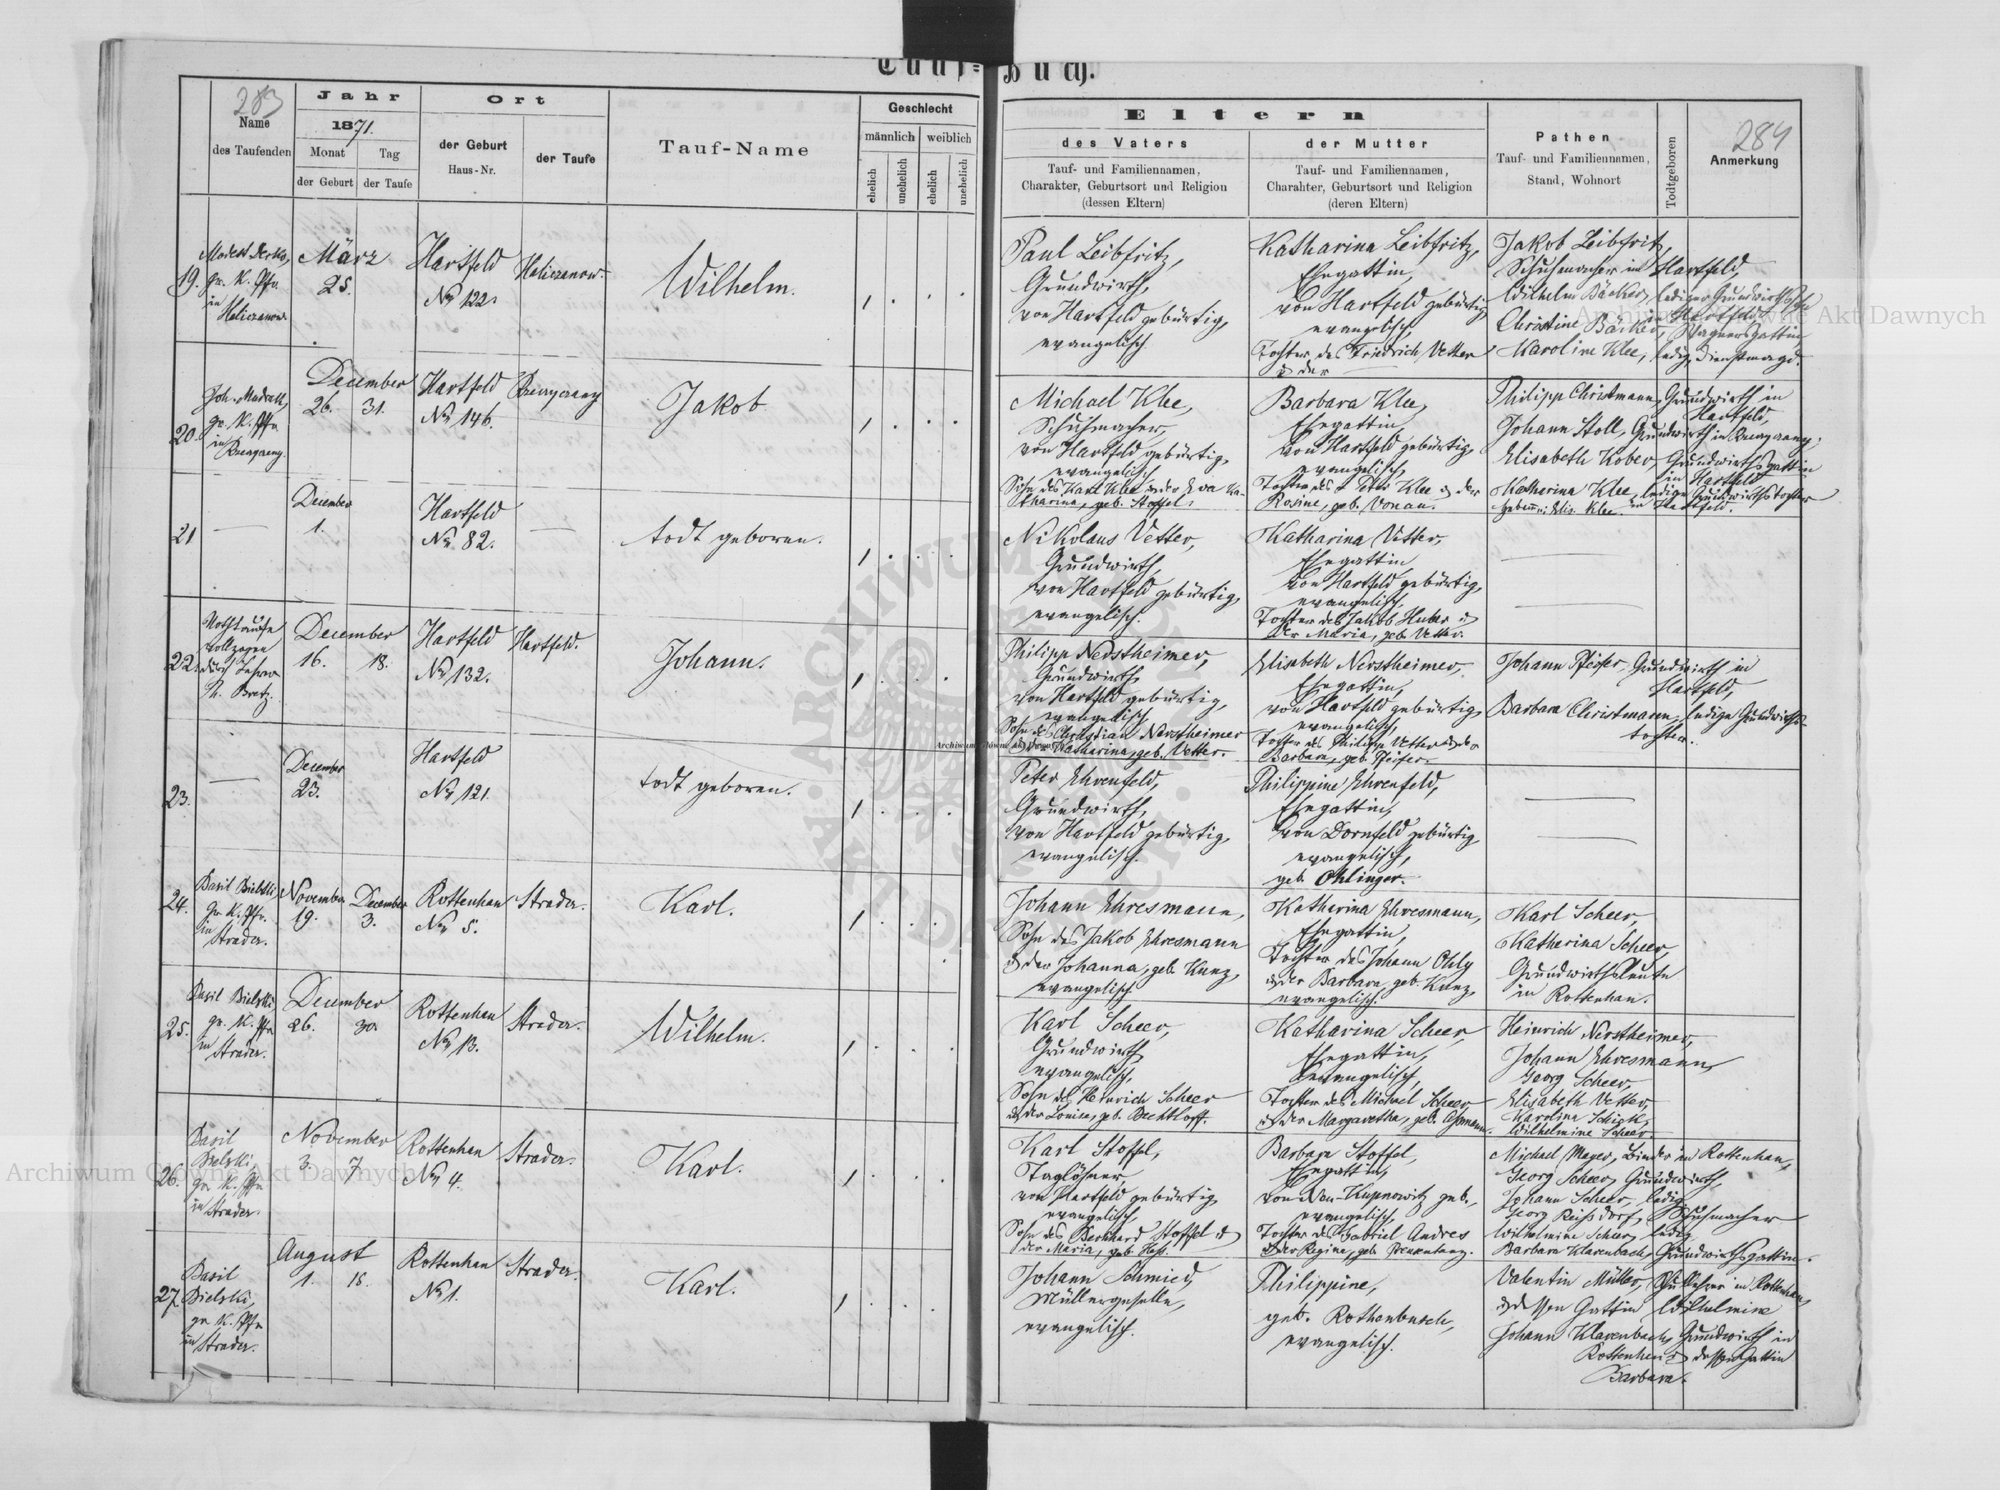 Tauf-Buch.
283
Name
des Taufenden
Jahr
1871.
Monat
Tag
der Geburt
der Taufe
Ort
der Geburt
Haus-Nr.
der Taufe
Tauf-Name
Geschlecht
männlich
weiblich
ehelich
unehelich
ehelich
unehelich
Eltern
des Vaters
Tauf- und Familiennamen,
Charakter, Geburtsort und Religion
(dessen Eltern)
der Mutter
Tauf- und Familiennamen,
Charahter, Geburtsort und Religion
(deren Eltern)
Pathen
Tauf- und Familiennamen,
Stand, Wohnort
Todtgeboren
284
Anmerkung
19.
gr. K. Pfr.
in
März
25.
Hartfeld
No 122.
Wilhelm.
Paul Leibfritz,
Grundwirth,
von Hartfeld gebürtig,
evangelisch
Katharina Leibfritz,
Ehegattin,
von Hartfeld gebürtig,
evangelisch,
Tochter des Friedrich Vetter
u der
Jakob Leibfritz,
Schuhmacher in Hartfeld,
Wilhelm Bäcker, lediger
Christine Bäcker,
Karoline Klee, ledig, Dienstmagd.
20.
gr. K. Pfr.
in
December
26. 31.
Hartfeld
No 146.
Jakob
Michael Klee,
Schuhmacher,
von Hartfeld gebürtig,
evangelisch
Sohn des Karl Klee u der Eva Ka-
tharina, geb. Stoffel.
Barbara Klee,
Ehegattin,
von Hartfeld gebürtig,
evangelisch,
Tochter des Peter Klee u der
Rosine, geb. Vonau.
Philipp Christmann, Grundwirth in
Hartfeld,
Johann Stoll, Grundwirth in
Elisabeth Kober, Grundwirthsgattin
in Hartfeld
Katharina Klee, ledige Grundwirthstochter
in Hartfeld.
Elis. Klee.
21
December
1.
Hartfeld
No 82.
todt geboren.
Nikolaus Vetter,
Grundwirth,
von Hartfeld gebürtig,
evangelisch.
Katharina Vetter,
Ehegattin,
von Hartfeld gebürtig,
evangelisch,
Tochter des Jakob Huber u
der Maria, geb. Vetter.
22.
Nothtaufe
vollzogen
durch Lehrer
Ph. Bretz.
December
16. 18.
Hartfeld
No 132.
Hartfeld.
Johann.
Philipp Nerstheimer,
Grundwirth,
von Hartfeld gebürtig,
evangelisch,
Sohn des Christian Nerstheimer
u der Katharina, geb. Vetter.
Elisabeth Nerstheimer,
Ehegattin,
von Hartfeld gebürtig,
evangelisch,
Tochter des Philipp Vetter u der
Barbara, geb. Pfeifer.
Johann Pfeifer, Grundwirth in
Hartfeld,
Barbara Christmann, ledige Grundwirths-
tochter.
23.
December
23.
Hartfeld
No 121.
todt geboren.
Peter Ehrenfeld,
Grundwirth,
von Hartfeld gebürtig,
evangelisch.
Philippine Ehrenfeld,
Ehegattin,
von Dornfeld gebürtig
evangelisch,
geb. Ohlinger.
24.
Basil Bielski,
gr. K. Pfr.
in
Strader.
November
19.
December
3.
Rottenhan
No 5.
Strader.
Karl.
Johann Ehresmann,
Sohn des Jakob Ehresmann
u der Johanna, geb. Kunz,
evangelisch
Katharina Ehresmann,
Ehegattin,
Tochter des Johann Ohly
u der Barbara, geb. Kunz,
evangelisch.
Karl Scheer,
Katharina Scheer,
Grundwirthsleute
in Rottenhan.
25.
Basil Bielski
gr. K. Pfr.
in Strader.
December
26. 30.
Rottenhan
No 13.
Strader.
Wilhelm.
Karl Scheer,
Grundwirth,
evangelisch,
Sohn des Heinrich Scheer
u der Louise, geb. Bechtloff.
Katharina Scheer,
Ehegattin,
evangelisch,
Tochter des Michael Scheer
u der Margaretha, geb.
Heinrich Nerstheimer,
Johann Ehresmann,
Georg Scheer,
Elisabeth Vetter,
Karolina Schick,
Wilhelmine Scheer.
26.
Basil
Bielski,
gr. K. Pfr.
in Strader.
November
3. 7
Rottenhan
No 4.
Strader.
Karl.
Karl Stoffel,
Taglöhner,
von Hartfeld gebürtig,
evangelisch,
Sohn des Bernhard Stoffel u
der Maria, geb. Heß.
Barbara Stoffel,
Ehegattin,
von Neu-Kupnowitz geb.,
evangelisch,
Tochter des Gabriel Andres
u der Regine, geb.
Michael Mayer, Binder in Rottenhan,
Georg Scheer, Grundwirth,
Johann Scheer, ledig
Georg Reiß dorf, Schuhmacher
Wilhelmine Scheer, ledig
Barbara Klarenbach, Grundwirthsgattin.
27.
Basil
Bielski,
gr. K. Pfr.
in Strader.
August
1. 15.
Rottenhan
No 1.
Strader.
Karl.
Johann Schmied,
Müllergeselle,
evangelisch.
Philippine,
geb. Rothenbusch,
evangelisch.
Valentin Müller, Schullehrer in Rottenhan,
u dessen Gattin Wilhelmine
Johann Klarenbach, Grundwirth in
Rottenhan u dessen Gattin
Barbara.
Archiwum Główne Akt Dawnych
Archiwum Główne Akt Dawnych
Archiwum Główne Akt Dawnych